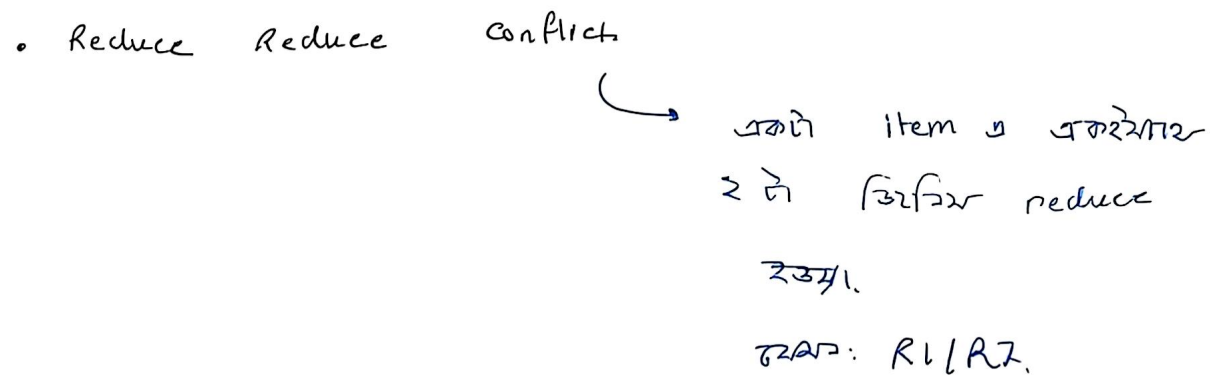 • Reduce Reduce conflict
একটা item এ একইসাথে
২ টা ভিন্ন reduce
হওয়া.
যেমন: R1/R2.